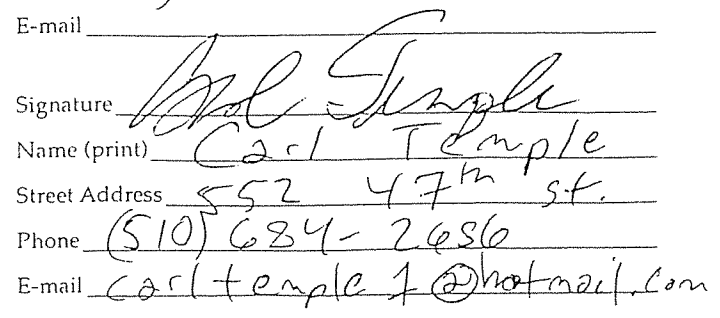 E-mail
Signature Carl Temple
Name (print) Carl Temple
Street Address 552 47th st.
Phone (510) 684-2656
E-mail carltemple1@hotmail.com